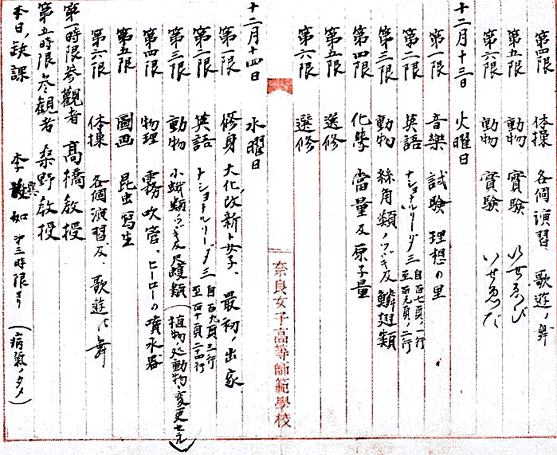 第四限 体操 各個演習 歌遊ノ舞
第五限 動物 實驗 いせゑび
第六限 動物 實驗 いせゑび
十二月十三日 火曜日
第一限 音樂 試驗 理想の里
第二限 英語 ナショナルリーダ三 自百七頁一行 至百九頁二行
第三限 動物 絲角類ノツヅキ及鱗翅類
第四限 化學 當量及原子量
第五限 選修
第六限 選修
奈良女子高等師範學校
十二月十四日 水曜日
第一限 修身 大化改新ト女子、最初ノ出家
第二限 英語 ナショナルリーダ三 自百九頁三行 至百十頁二十四行
第三限 動物 小蛾類ノツヅキ及蝶類(植物ノ処動物ニ変更セル)
第四限 物理 霧吹管、ヒーローの噴水器
第五限 圖画 昆虫寫生
第六限 体操 各個演習及歌遊ノ舞
第一時限参觀者 高橋教授
第五時限参觀者 桑野教授
本日ノ缺課 李 如 第三時限ヨリ(病氣ノタメ)